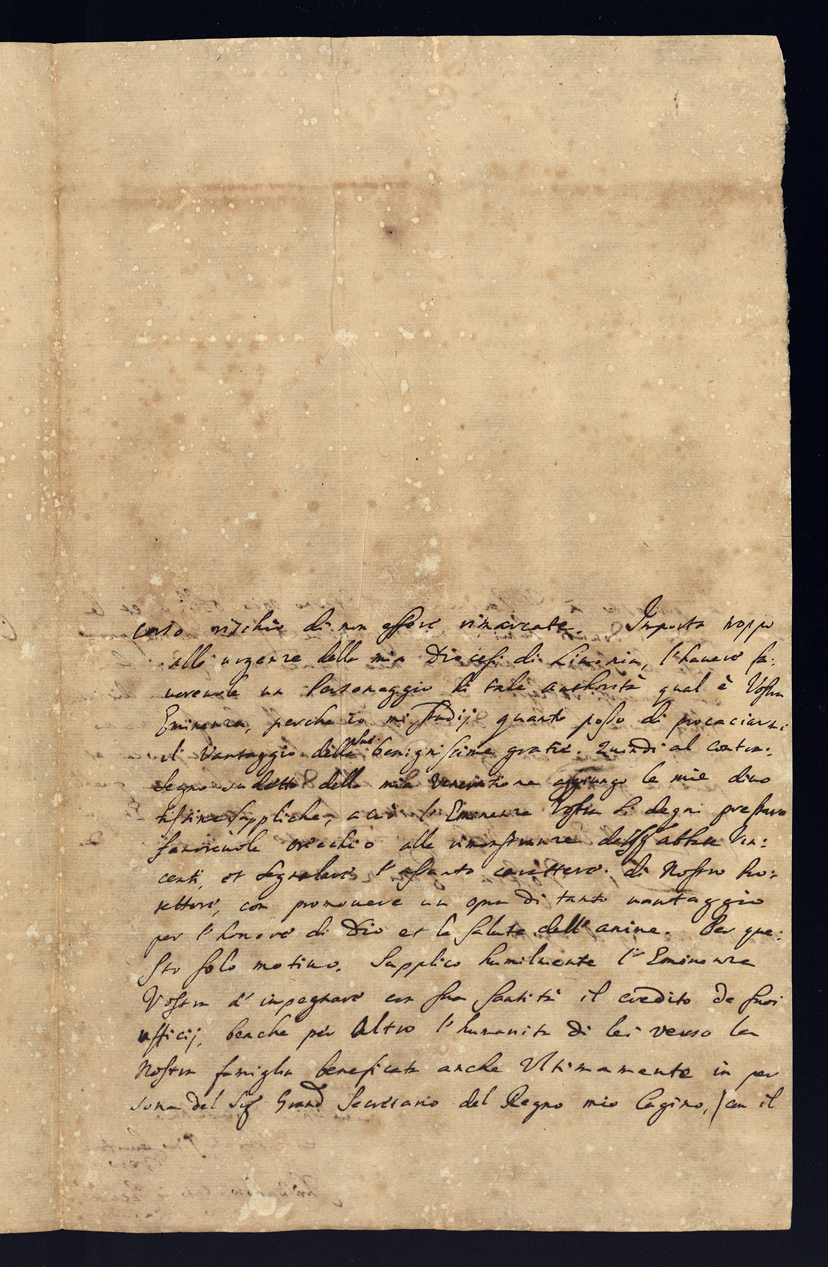 certo rischio di non essere rimarcate. Importa troppo
alle urgenze della mia Diocesi di Livonia, l'havere fa-
vorevole un Personaggio di tale authorità qual è Vostra
Eminenza, perche io mi studij quanto posso di procacciarmi
il vantaggio della benignissima gratia. Quindi al contra-
segno sudetto della mia veneratione aggiungo le mie divo
tissime suppliche, acciò l'Eminenza Vostra si degni prestare
favorevole orecchio alle rimostranze dell' Abbate Vin-
centi, et segnalare l'assunto carattere di Nostro Pro-
tettore, con promovere un opra di tanto vantaggio
per l'honore di Dio et la salute dell'anime. Per que-
sto solo motivo, supplico humilmente l'Eminenza
Vostra d'impegnare con sua Santità il credito de suoi
ufficij, benche per altro l'humanità di lei verso la
Nostra famiglia beneficata anche Ultimamente in per
sona del Sig Grand Secretario del Regno mio Cugino, con il